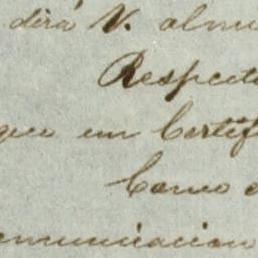 dirá V. alm
Respecto
que un Certif
Como
comunicacion